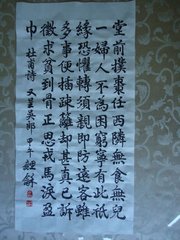 堂前撲棗任西隣無食無兒
一婦人不為困窮寧有此祇
緣恐懼轉須親即防遠客雖
多事便插疎籬却甚真已訴
徵求貧到骨正思戎馬淚盈
巾 杜甫詩 又呈吳郎 甲午